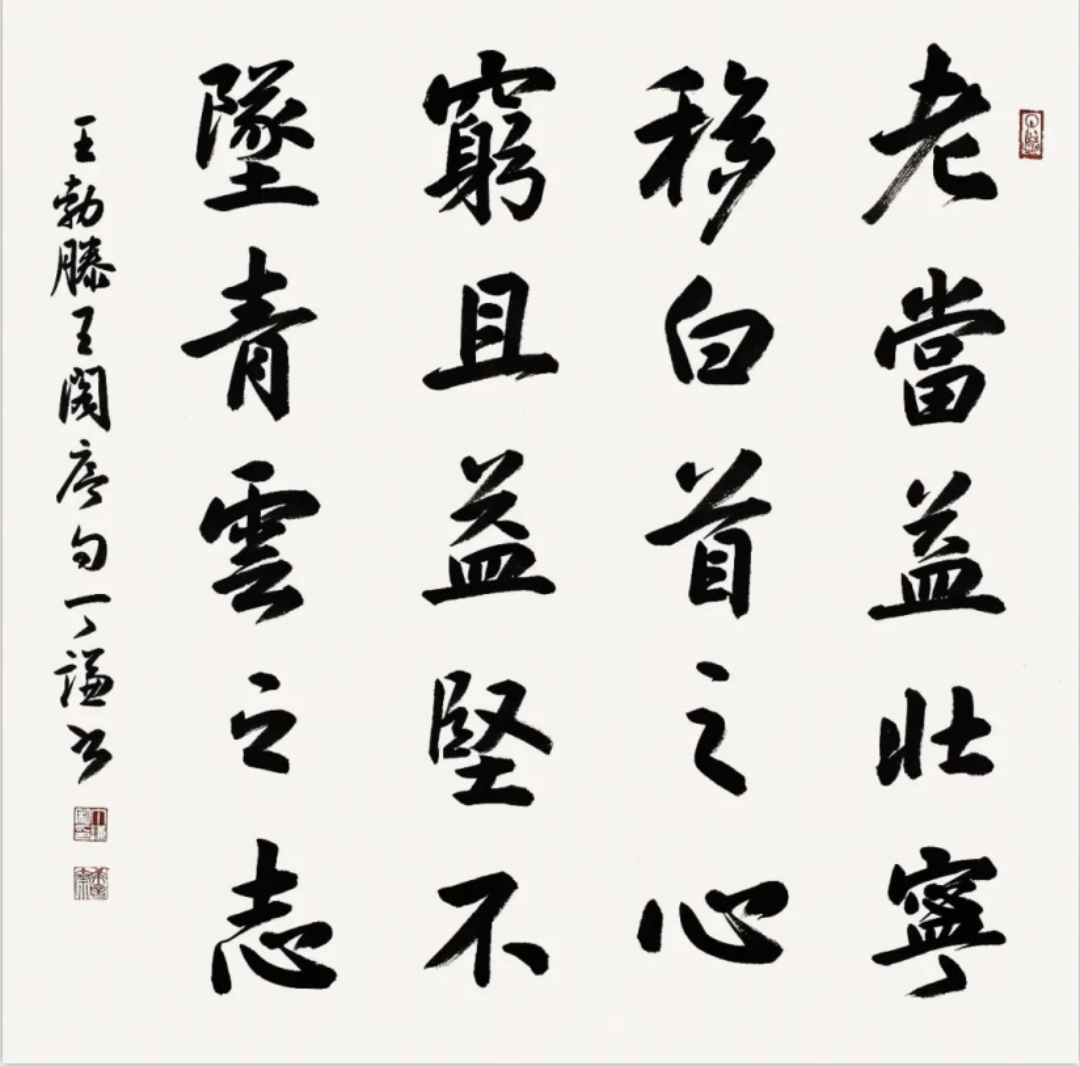 老當益壯寧
移白首之心
窮且益堅不
墜青雲之志
王勃滕王閣序句丁謙书